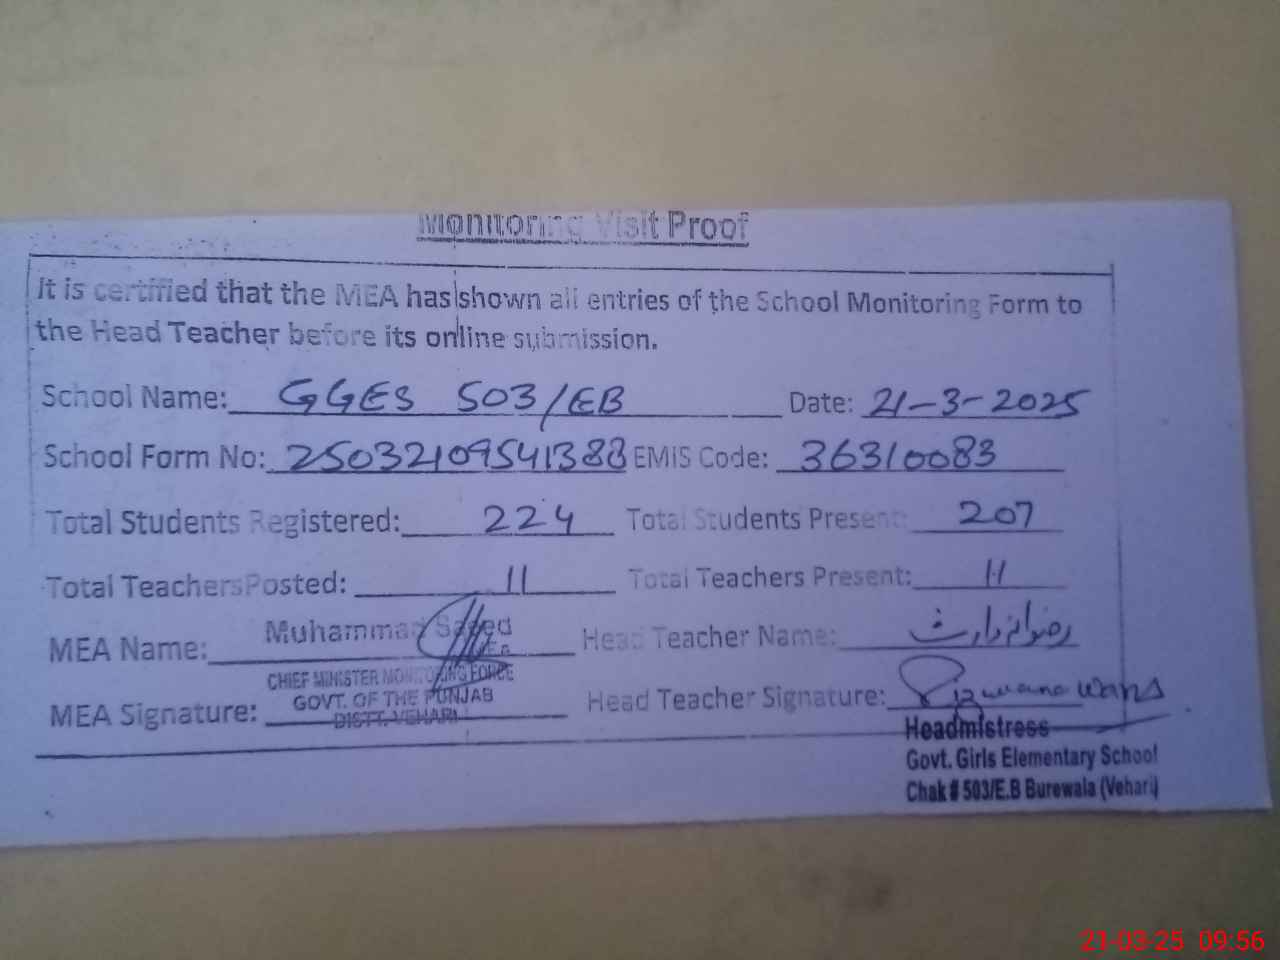 Monitoring Visit Proof
It is certified that the MEA has shown all entries of the School Monitoring Form to
the Head Teacher before its online submission.
School Name: GGES 503/EB Date: 21-3-2025
School Form No: 25032109541388 EMIS Code: 36310083
Total Students Registered: 224 Total Students Present: 207
Total TeachersPosted: 11 Total Teachers Present: 11
MEA Name: Muhammad Saeed Head Teacher Name: رضوانہ وارث
CHIEF MINISTER MONITORING FORCE
GOVT. OF THE PUNJAB
MEA Signature: DISTT. VEHARI Head Teacher Signature: Rizwana Waris
Headmistress
Govt. Girls Elementary School
Chak # 503/E.B Burewala (Vehari)
21-03-25 09:56